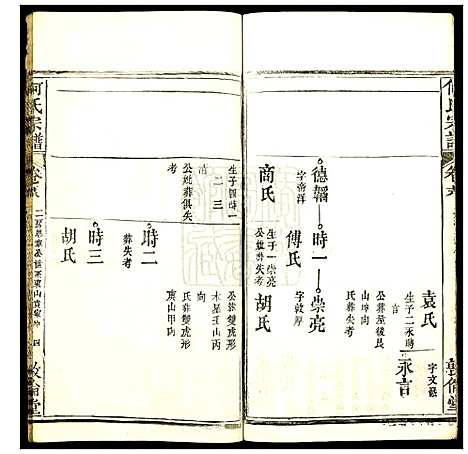 何氏宗譜
卷六
敦倫堂
袁氏
生子二永時
言
永言
字文
德韜
時一
崇亮
字帝洋
傅氏
字敦厚
公葬屋後艮
山坤向
氏葬失考
商氏
生子一崇亮
公妣葬失考
胡氏
公葬雙虎形
木星丑山丙
向
氏葬雙虎形
寅山甲向
生子四時一
二 三
公妣葬俱失
考
時二
葬失考
時三
胡氏
何氏宗譜
四
敦倫堂